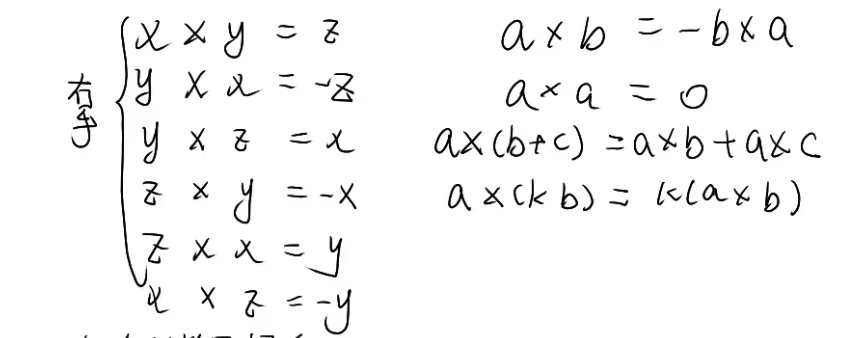 右手
x × y = z
y × x = -z
y × z = x
z × y = -x
z × x = y
x × z = -y
a × b = -b × a
a × a = 0
a×(b+c) = a×b+a×c
a×(k b) = k(a×b)